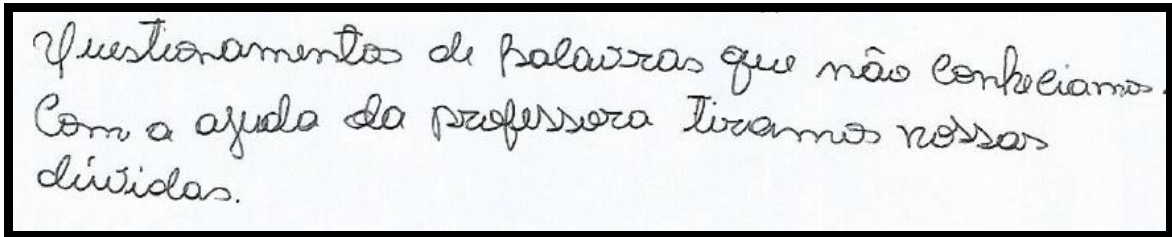 Questionamentos de palavras que não conheciamos.
Com a ajuda da professora tiramos nossas
dúvidas.